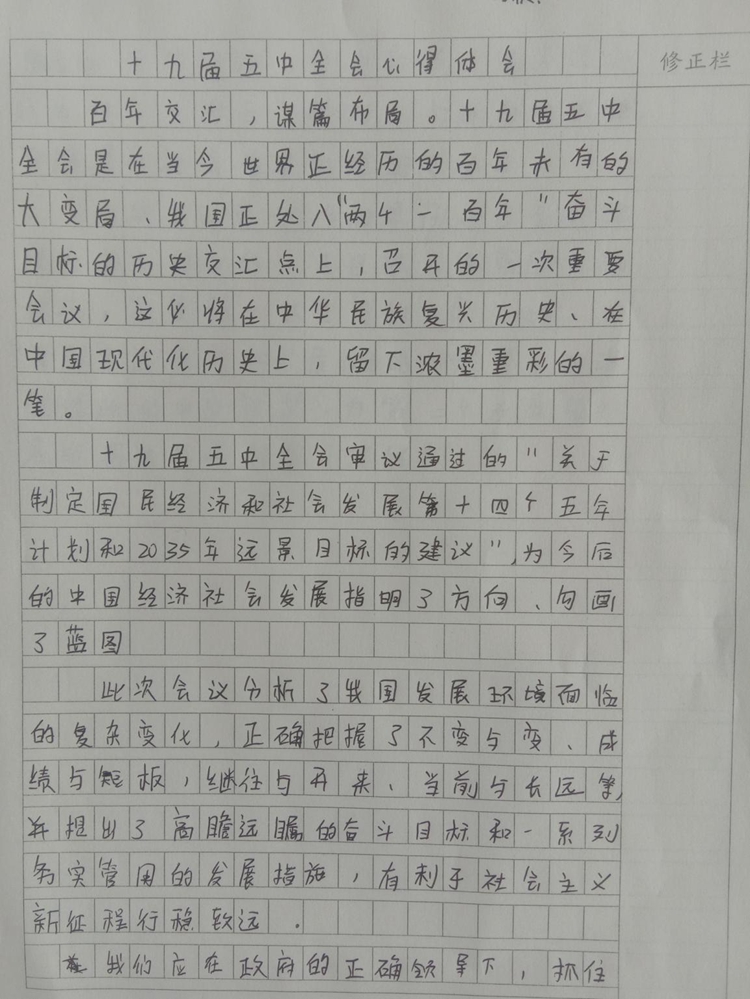 十九届五中全会心得体会
修正栏
百年交汇，谋篇布局。十九届五中
全会是在当今世界正经历的百年未有的
大变局、我国正处八"两个一百年"奋斗
目标的历史交汇点上，召开的一次重要
会议，这必将在中华民族复兴历史、在
中国现代化历史上，留下浓墨重彩的一
笔。
十九届五中全会审议通过的"关于
制定国民经济和社会发展第十四个五年
计划和2035年远景目标的建议"，为今后
的中国经济社会发展指明了方向、勾画
了蓝图
此次会议分析了我国发展环境面临
的复杂变化，正确把握了不变与变、成
绩与短板，继往与开来、当前与长远等，
并提出了高瞻远瞩的奋斗目标和一系列
务实管用的发展措施，有利于社会主义
新征程行稳致远．
我们应在政府的正确领导下，抓住